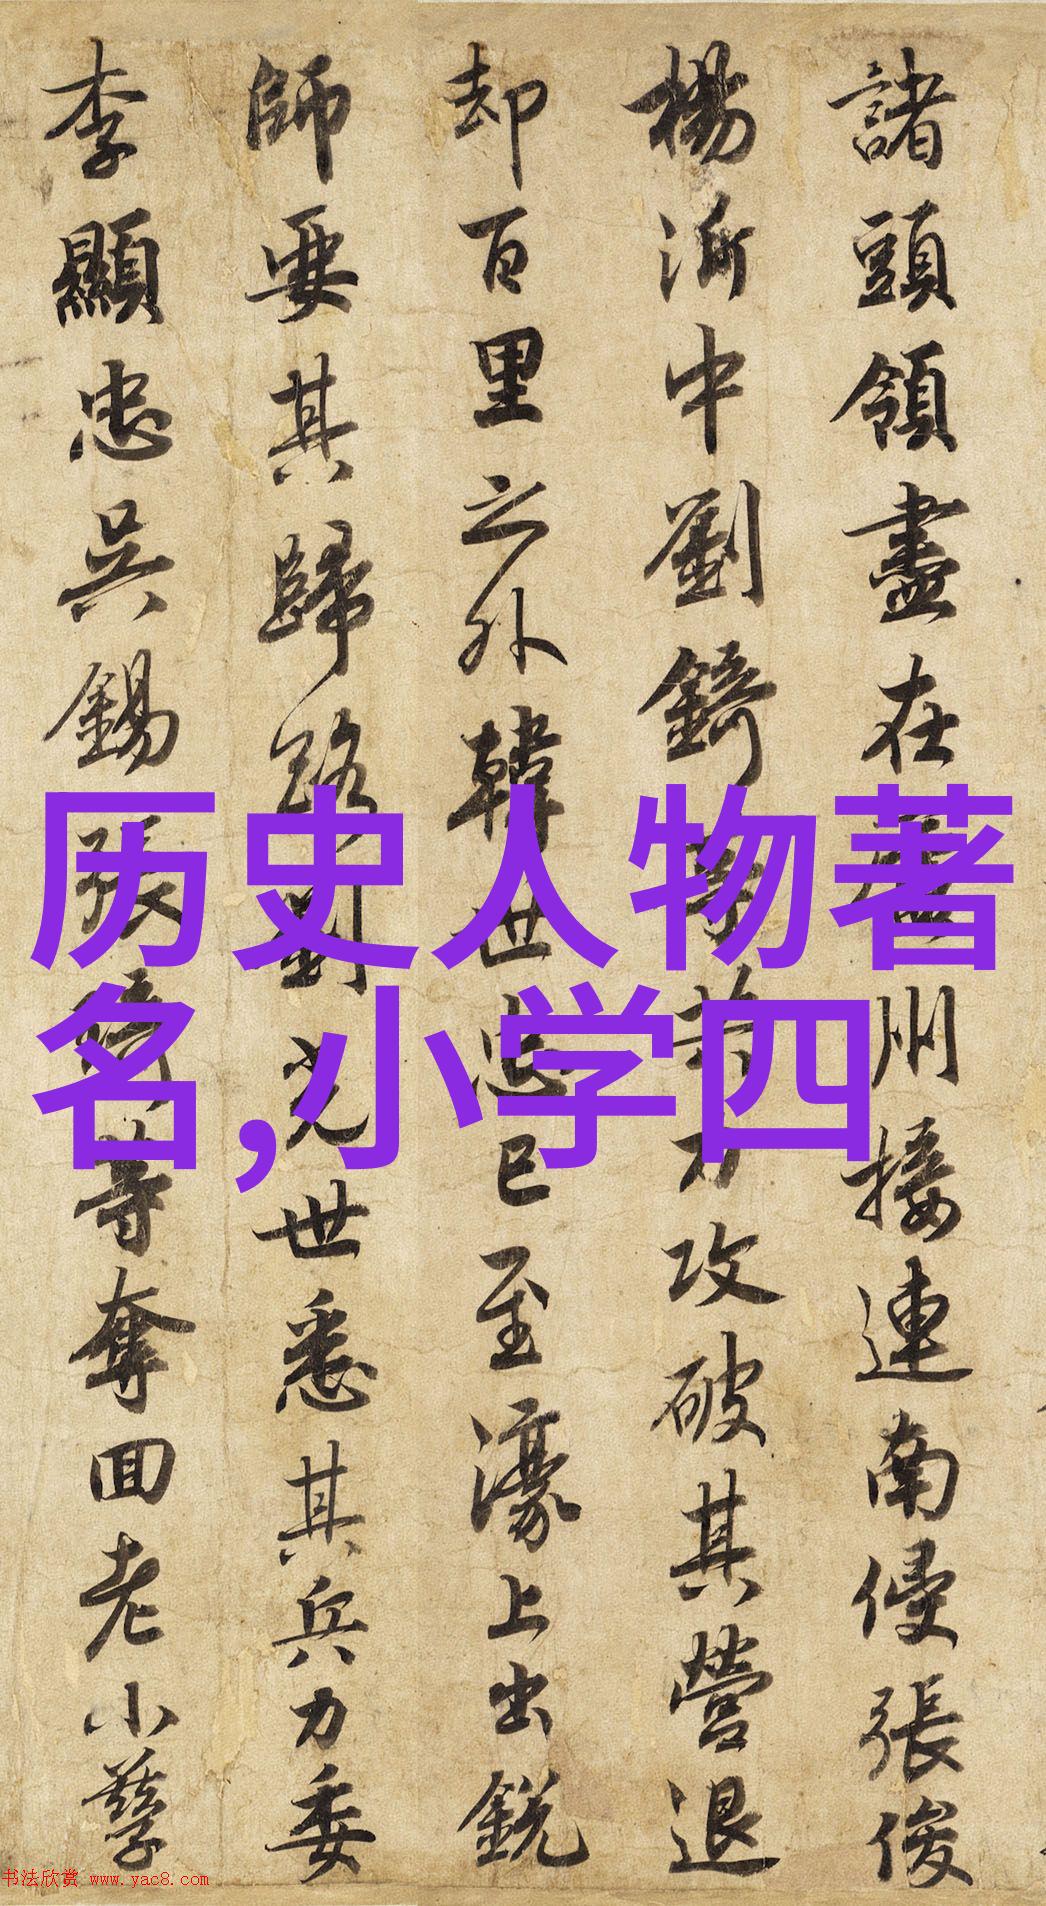 諸頭領盡在州接連南侵張俊
楊沂中劉錡等力攻破其營退
却百里之外韓世忠已至濠上出銳
師要其歸路劉光世悉其兵力委
李顯忠吳錫張琦等奪回老小孳
历史人物著
名,小学四
书法欣赏 www.yac8.com